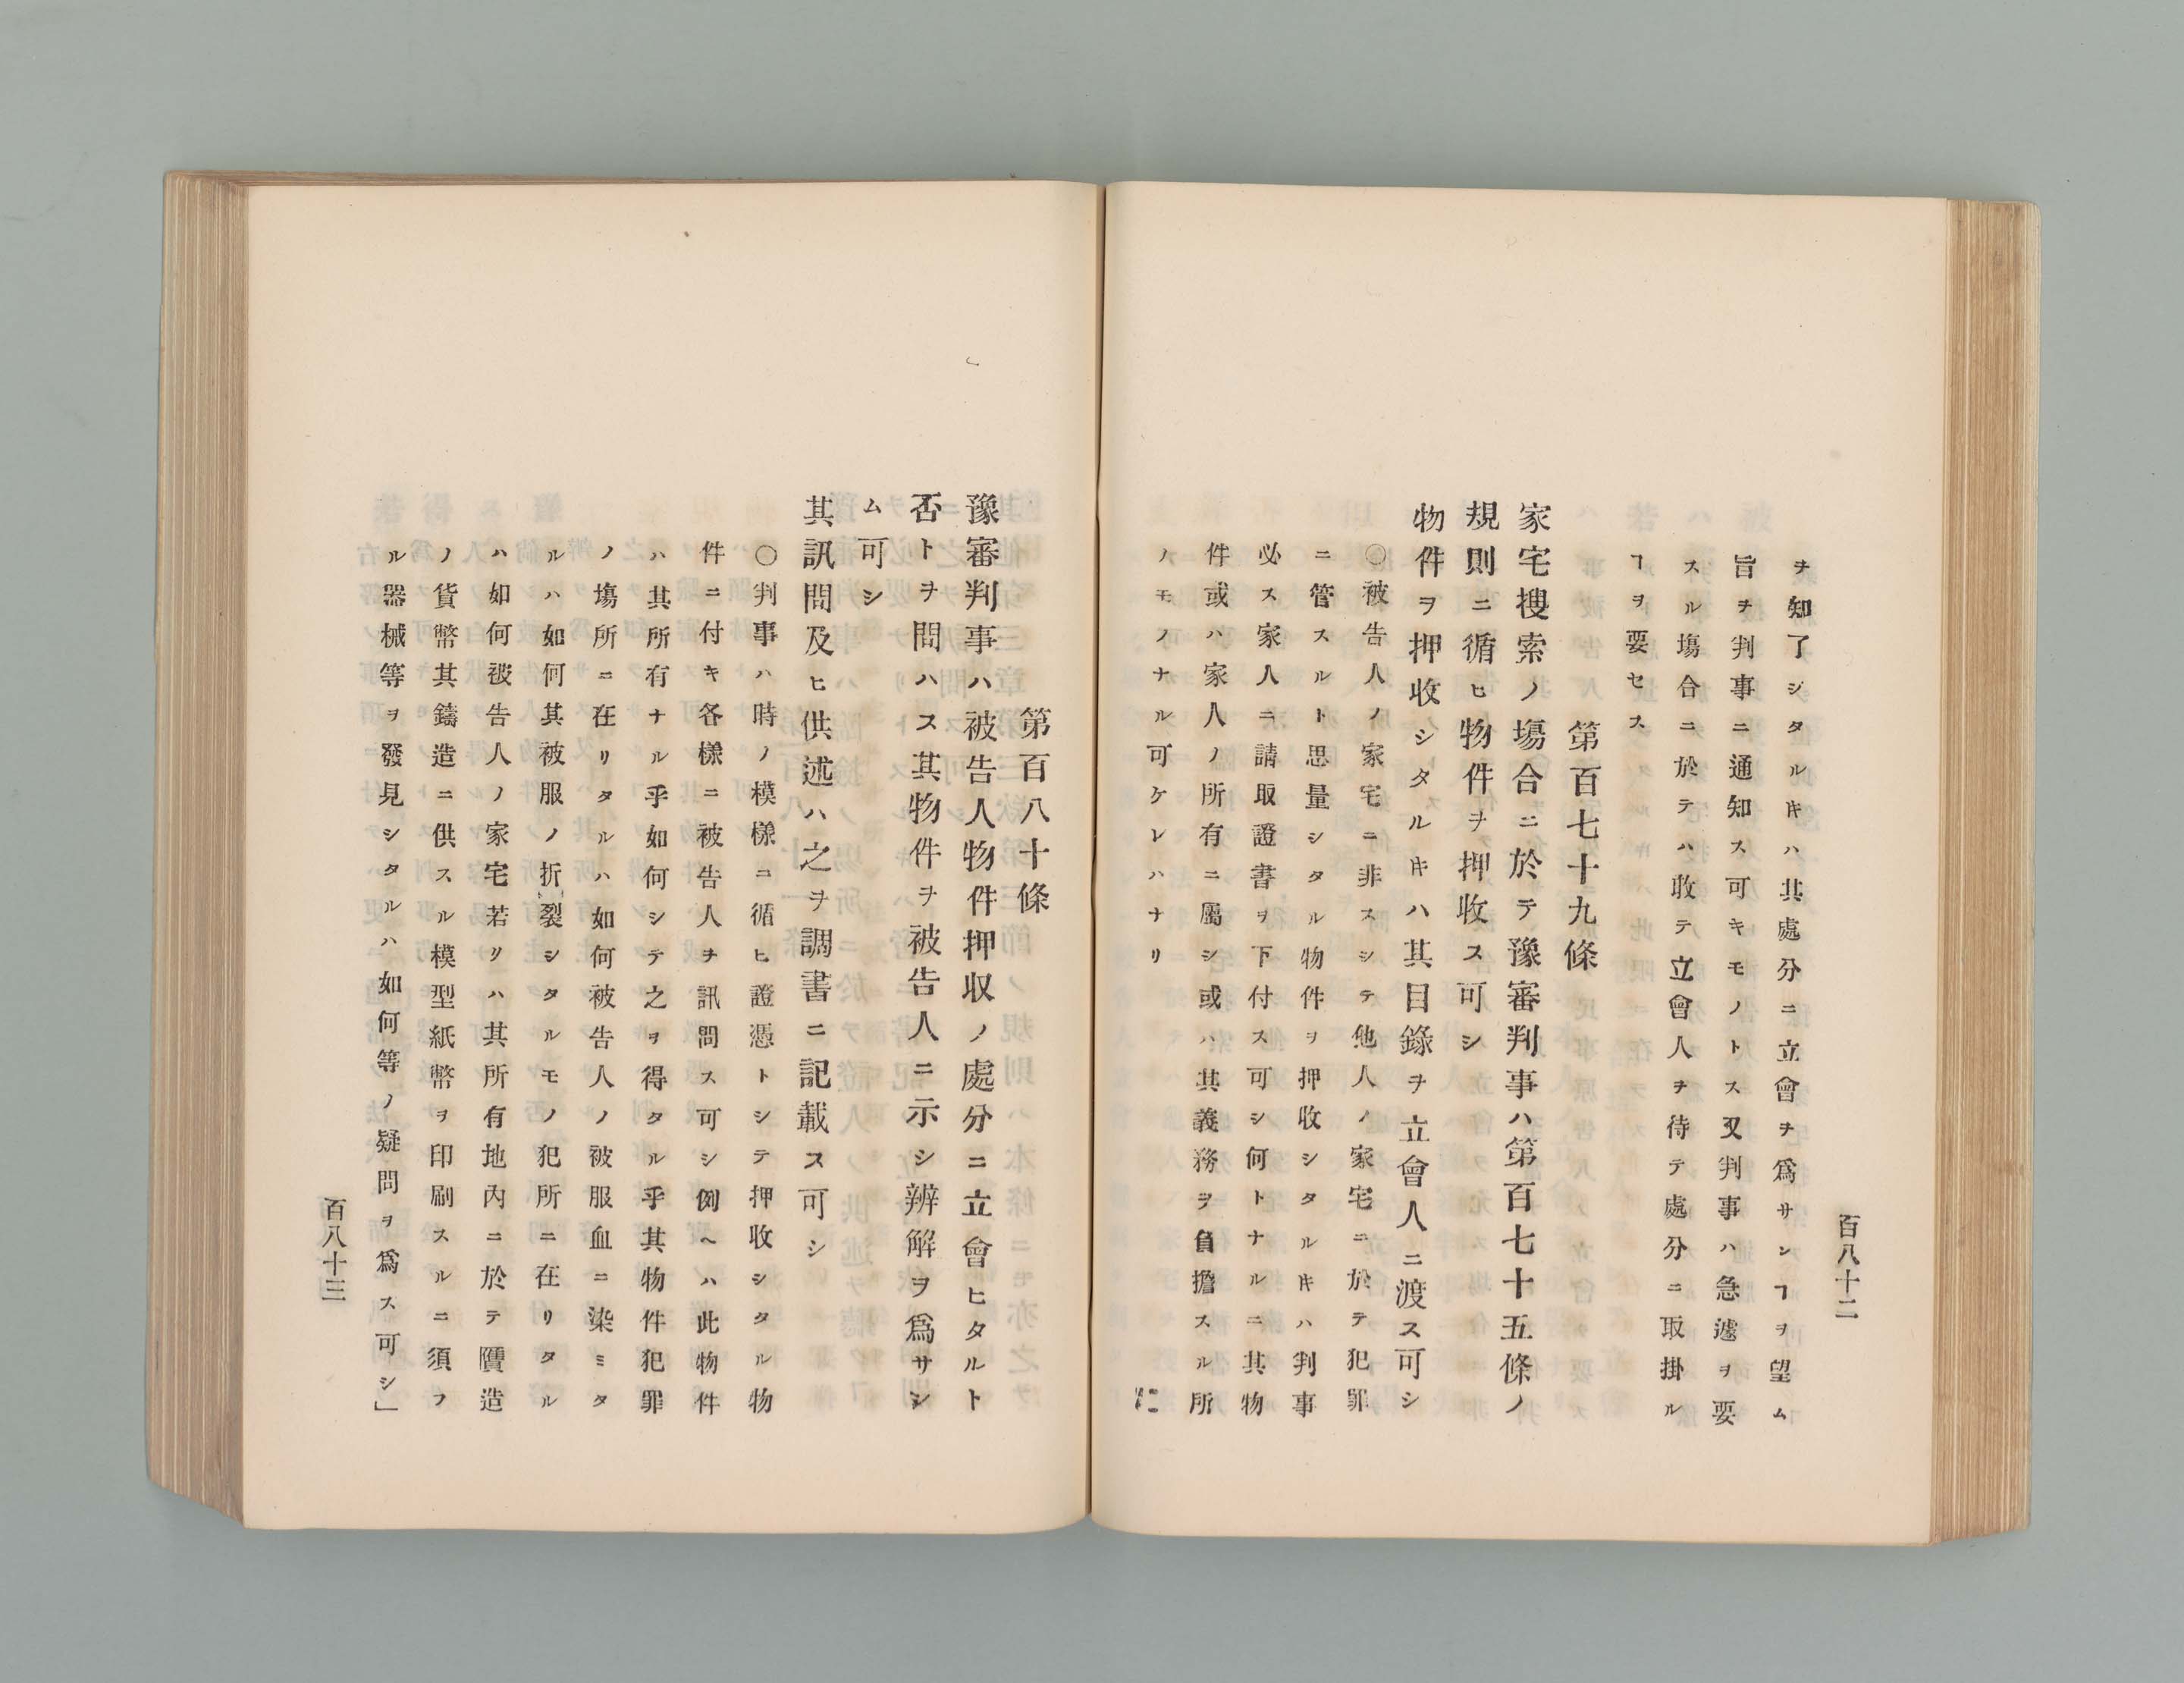 百八十二
ヲ知了シタルキハ其處分ニ立會ヲ爲サンヿヲ望ム
旨ヲ判事ニ通知ス可キモノトス又判事ハ急遽ヲ要
スル塲合ニ於テハ收テ立會人ヲ待テ處分ニ取掛ル
ヿヲ要セス
第百七十九條
家宅搜索ノ塲合ニ於テ豫審判事ハ第百七十五條ノ
規則ニ循ヒ物件ヲ押收ス可シ
物件ヲ押收シタルキハ其目錄ヲ立會人ニ渡ス可シ
○被告人ノ家宅ニ非スシテ他人ノ家宅ニ於テ犯罪
ニ管スルト思量シタル物件ヲ押收シタルキハ判事
必ス家人ニ請取證書ヲ下付ス可シ何トナルニ其物
件或ハ家人ノ所有ニ屬シ或ハ其義務ヲ負擔スル所
ノモノナル可ケレハナリ
に
第百八十條
豫審判事ハ被告人物件押収ノ處分ニ立會ヒタルト
否トヲ問ハス其物件ヲ被告人ニ示シ辨解ヲ爲サシ
ム可シ
其訊問及ヒ供述ハ之ヲ調書ニ記載ス可シ
○判事ハ時ノ模樣ニ循ヒ證憑トシテ押收シタル物
件ニ付キ各樣ニ被告人ヲ訊問ス可シ例ヘハ此物件
ハ其所有ナル乎如何シテ之ヲ得タル乎其物件犯罪
ノ塲所ニ在リタルハ如何被告人ノ被服血ニ染ミタ
ルハ如何其被服ノ折裂シタルモノ犯所ニ在リタル
ハ如何被告人ノ家宅若リハ其所有地內ニ於テ贋造
ノ貨幣其鑄造ニ供スル模型紙幣ヲ印刷スルニ須フ
ル器械等ヲ發見シタルハ如何等ノ疑問ヲ爲ス可シ」
百八十三